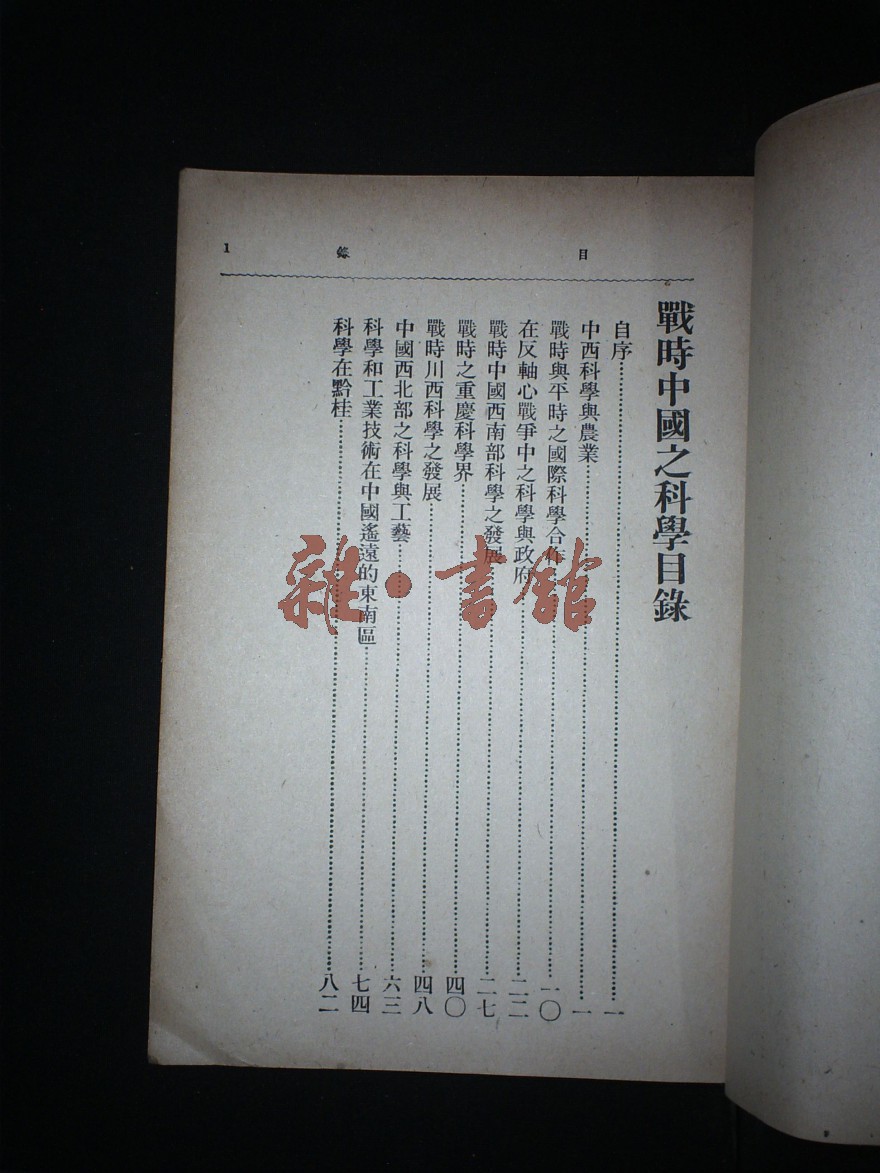 目錄 1
戰時中國之科學目錄
自序……一
中西科學與農業……一
戰時與平時之國際科學合作……一〇
在反軸心戰爭中之科學與政府……二二
戰時中國西南部科學之發展……二七
戰時之重慶科學界……四〇
戰時川西科學之發展……四八
中國西北部之科學與工藝……六三
科學和工業技術在中國遙遠的東南區……七四
科學在黔桂……八二
雜·書館